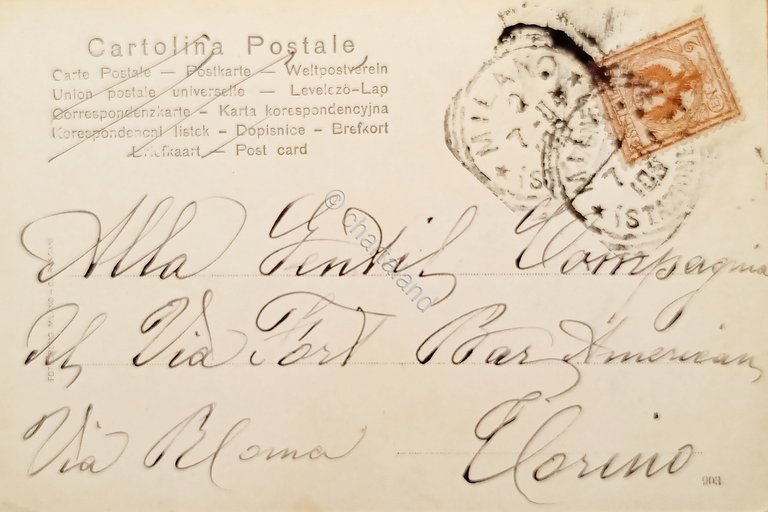 Cartolina Postale
Carte Postale — Postkarte — Weltpostverein
Union postale universelle — Levelező-Lap
Correspondenzkarte – Karta korespondencyjna
Korespondencni listek – Dopisnice – Brefkort
Briefkaart — Post card
MILANO
7
(STAZIONE
Alla Gentil Compagnia
Via Fort Bar American
Via Roma Torino
903
© chartaland